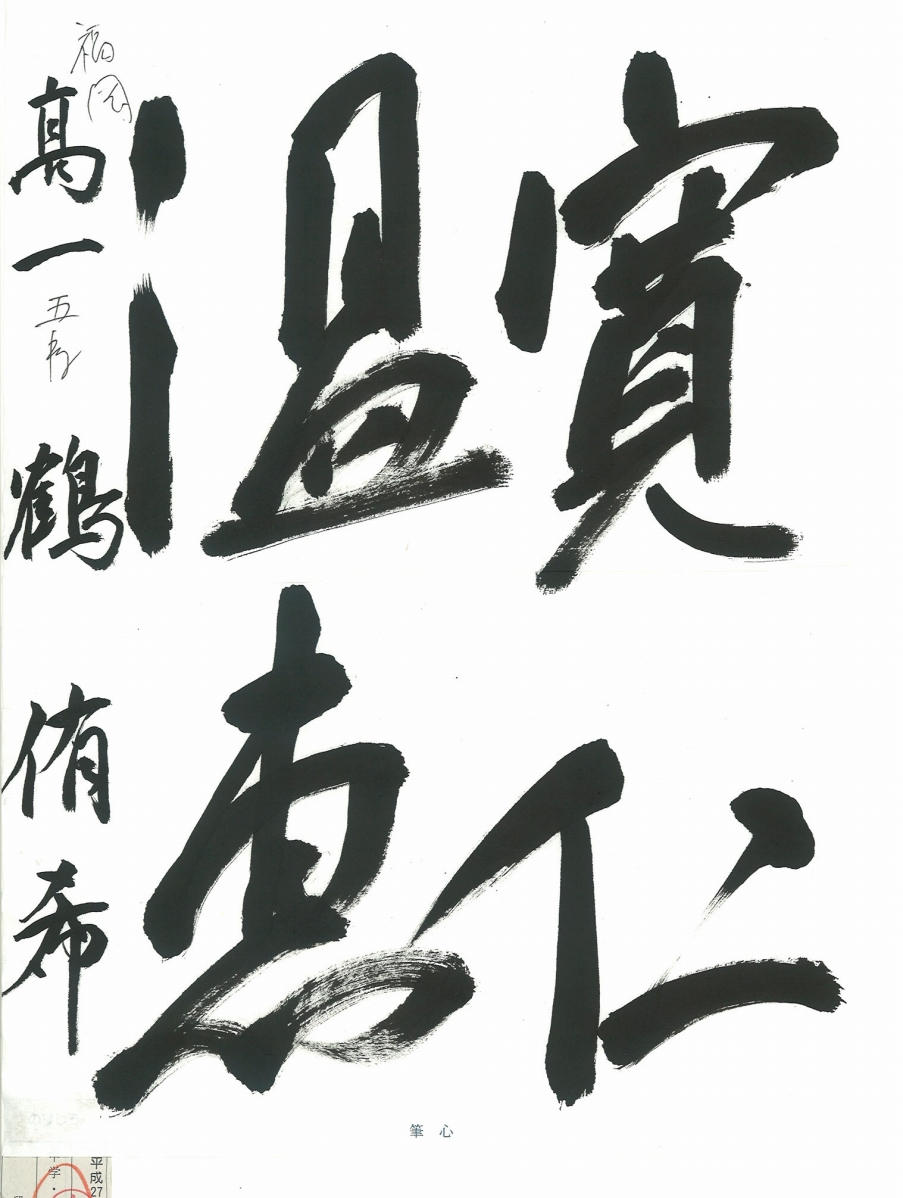 寛仁
温恵
福岡
高一 鶴 侑希
筆心
のりしろ
平成27
学・